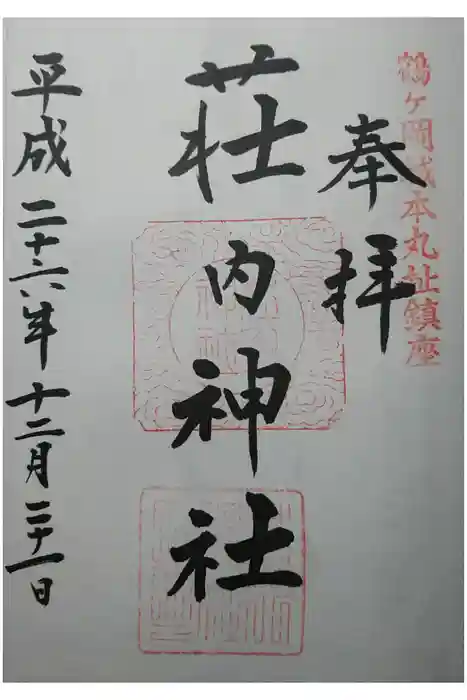 鶴ヶ岡城本丸址鎮座
奉拝
荘内神社
平成二十六年十二月二十一日